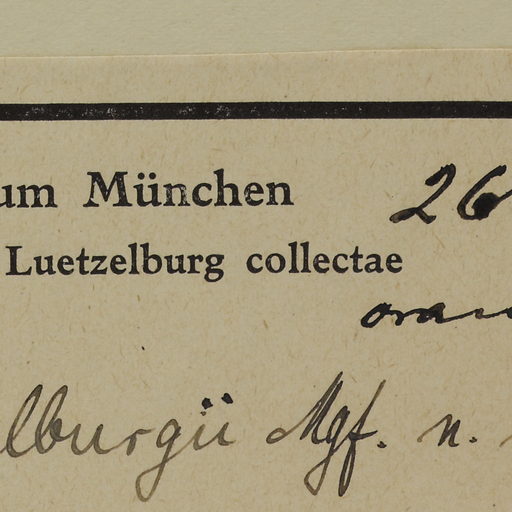 um München 26
Luetzelburg collectae
lburgii Mgf. n.